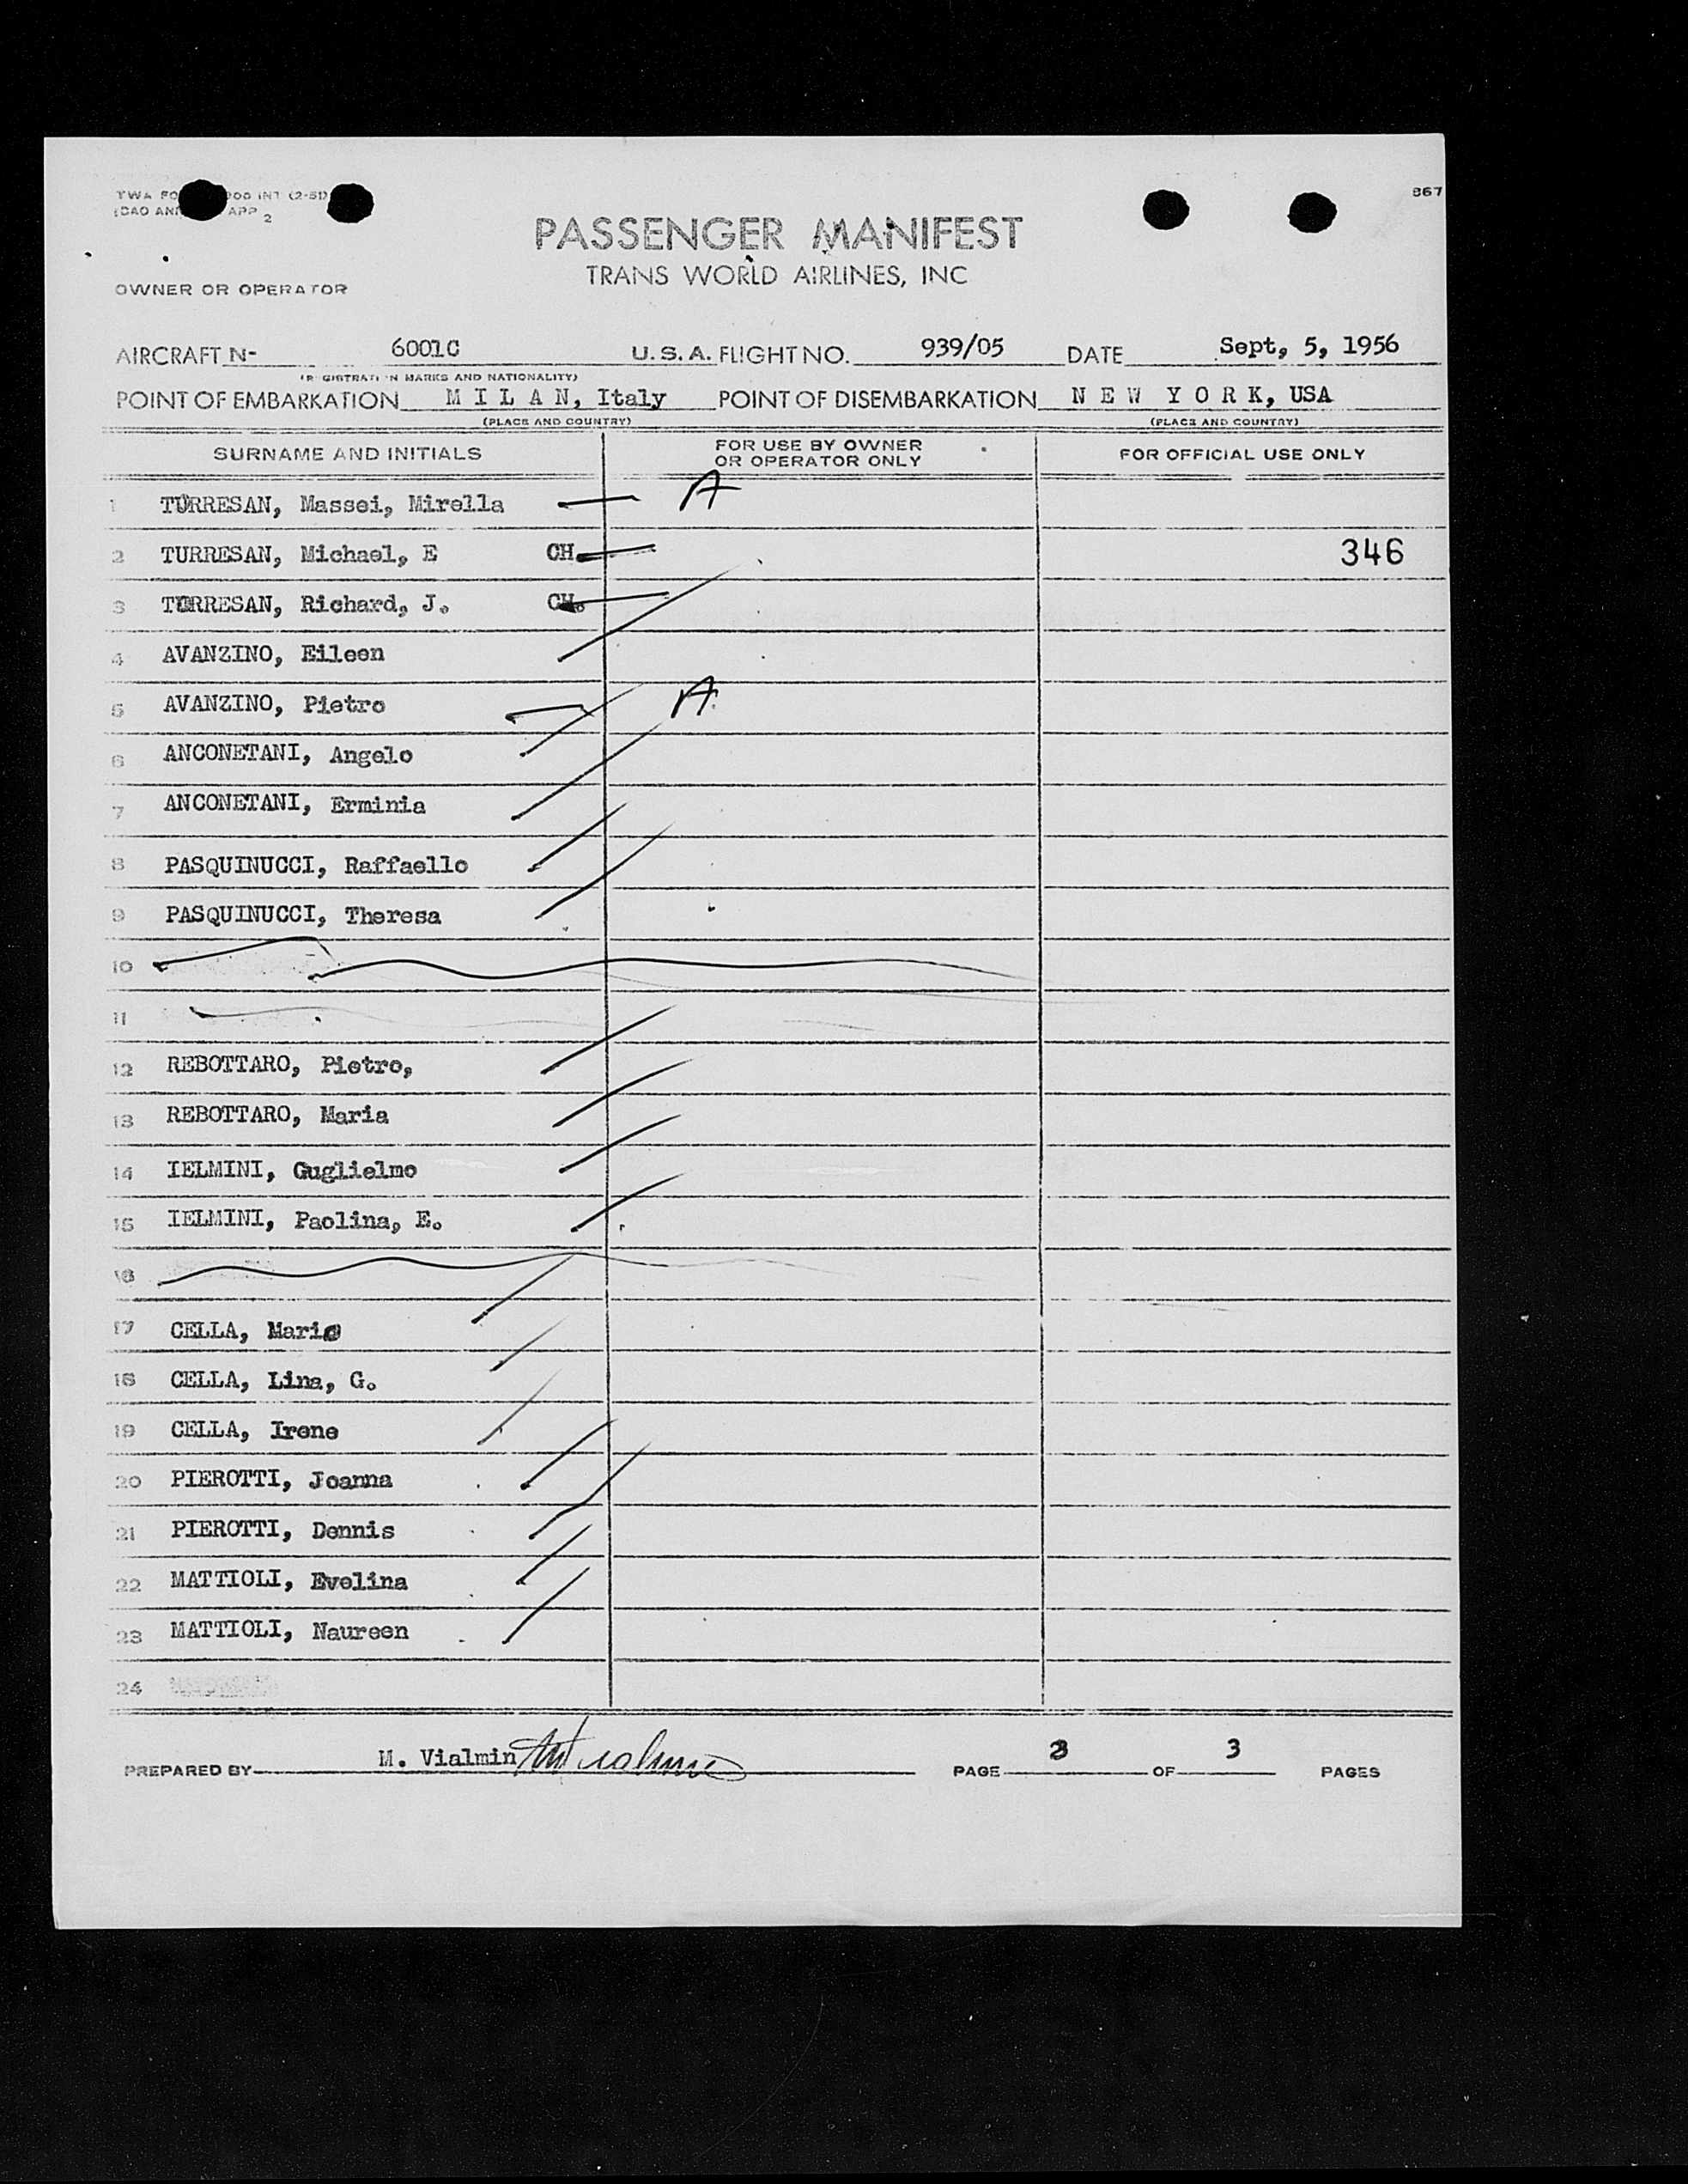 867
TWA FO 900 INT (2-51)
ICAO ANN APP 2
PASSENGER MANIFEST
TRANS WORLD AIRLINES, INC
OWNER OR OPERATOR
AIRCRAFT N- 6001C U.S.A. FLIGHT NO. 939/05 DATE Sept, 5, 1956
(REGISTRATION MARKS AND NATIONALITY)
POINT OF EMBARKATION M I L A N, Italy POINT OF DISEMBARKATION N E W Y O R K, USA
(PLACE AND COUNTRY) (PLACE AND COUNTRY)
SURNAME AND INITIALS FOR USE BY OWNER OR OPERATOR ONLY FOR OFFICIAL USE ONLY
1 TURRESAN, Massei, Mirella A
2 TURRESAN, Michael, E CH. 346
3 TURRESAN, Richard, J. CH.
4 AVANZINO, Eileen
5 AVANZINO, Pietro A
6 ANCONETANI, Angelo
7 ANCONETANI, Erminia
8 PASQUINUCCI, Raffaello
9 PASQUINUCCI, Theresa
10
11
12 REBOTTARO, Pietro,
13 REBOTTARO, Maria
14 IELMINI, Guglielmo
15 IELMINI, Paolina, E.
16
17 CELLA, Mario
18 CELLA, Lina, G.
19 CELLA, Irene
20 PIEROTTI, Joanna
21 PIEROTTI, Dennis
22 MATTIOLI, Evelina
23 MATTIOLI, Naureen
24
PREPARED BY M. Vialmin PAGE OF 3 PAGES